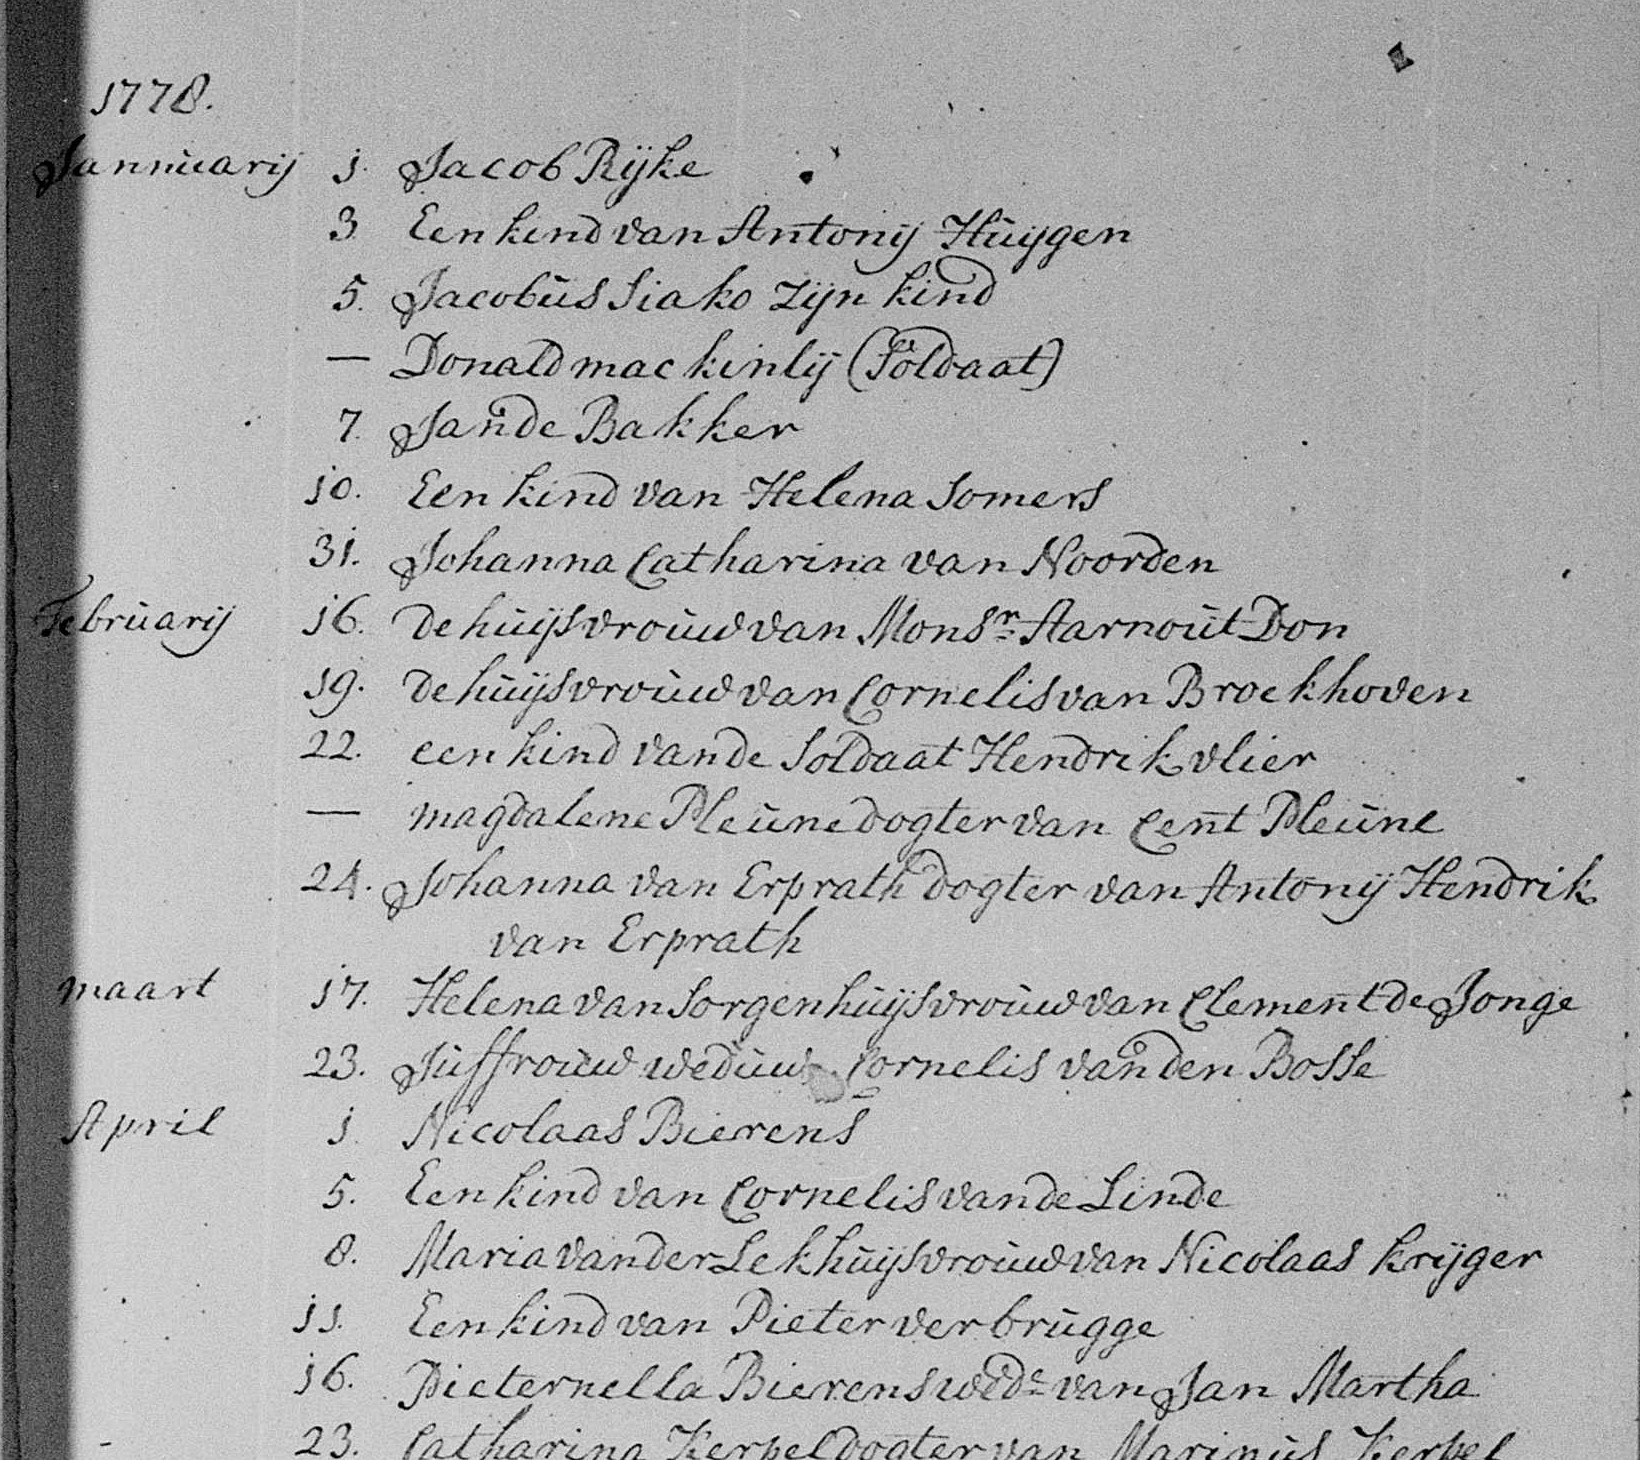 1778.
Januarij 1. Jacob Rijke
3 Een kind van Antonij Huijgen
5. Jacobus Siako zijn kind
— Donald mac kinlij (Soldaat)
7. Jan de Bakker
10. Een kind van Helena Somers
31. Johanna Catharina van Noorden
Februarij 16. de huijsvrouw van Monsr. Aarnout Don
19. de huijsvrouw van Cornelis van Broekhoven
22. een kind van de Soldaat Hendrik vlier
— magdalene Pleune dogter van Cent Pleune
24. Johanna van Erprath dogter van Antonij Hendrik
van Erprath
maart 17. Helena van Sorgen huijsvrouw van Clement de Jonge
23. Juffrouw weduw Cornelis van den Bosse
April 1. Nicolaas Bierens
5. Een kind van Cornelis van de Linde
8. Maria van der Lek huijsvrouw van Nicolaas krijger
11. Een kind van Pieter verbrugge
16. Pieternella Bierens wede van Jan Martha
23. Catharina Kerpel dogter van Marinus Kerpel